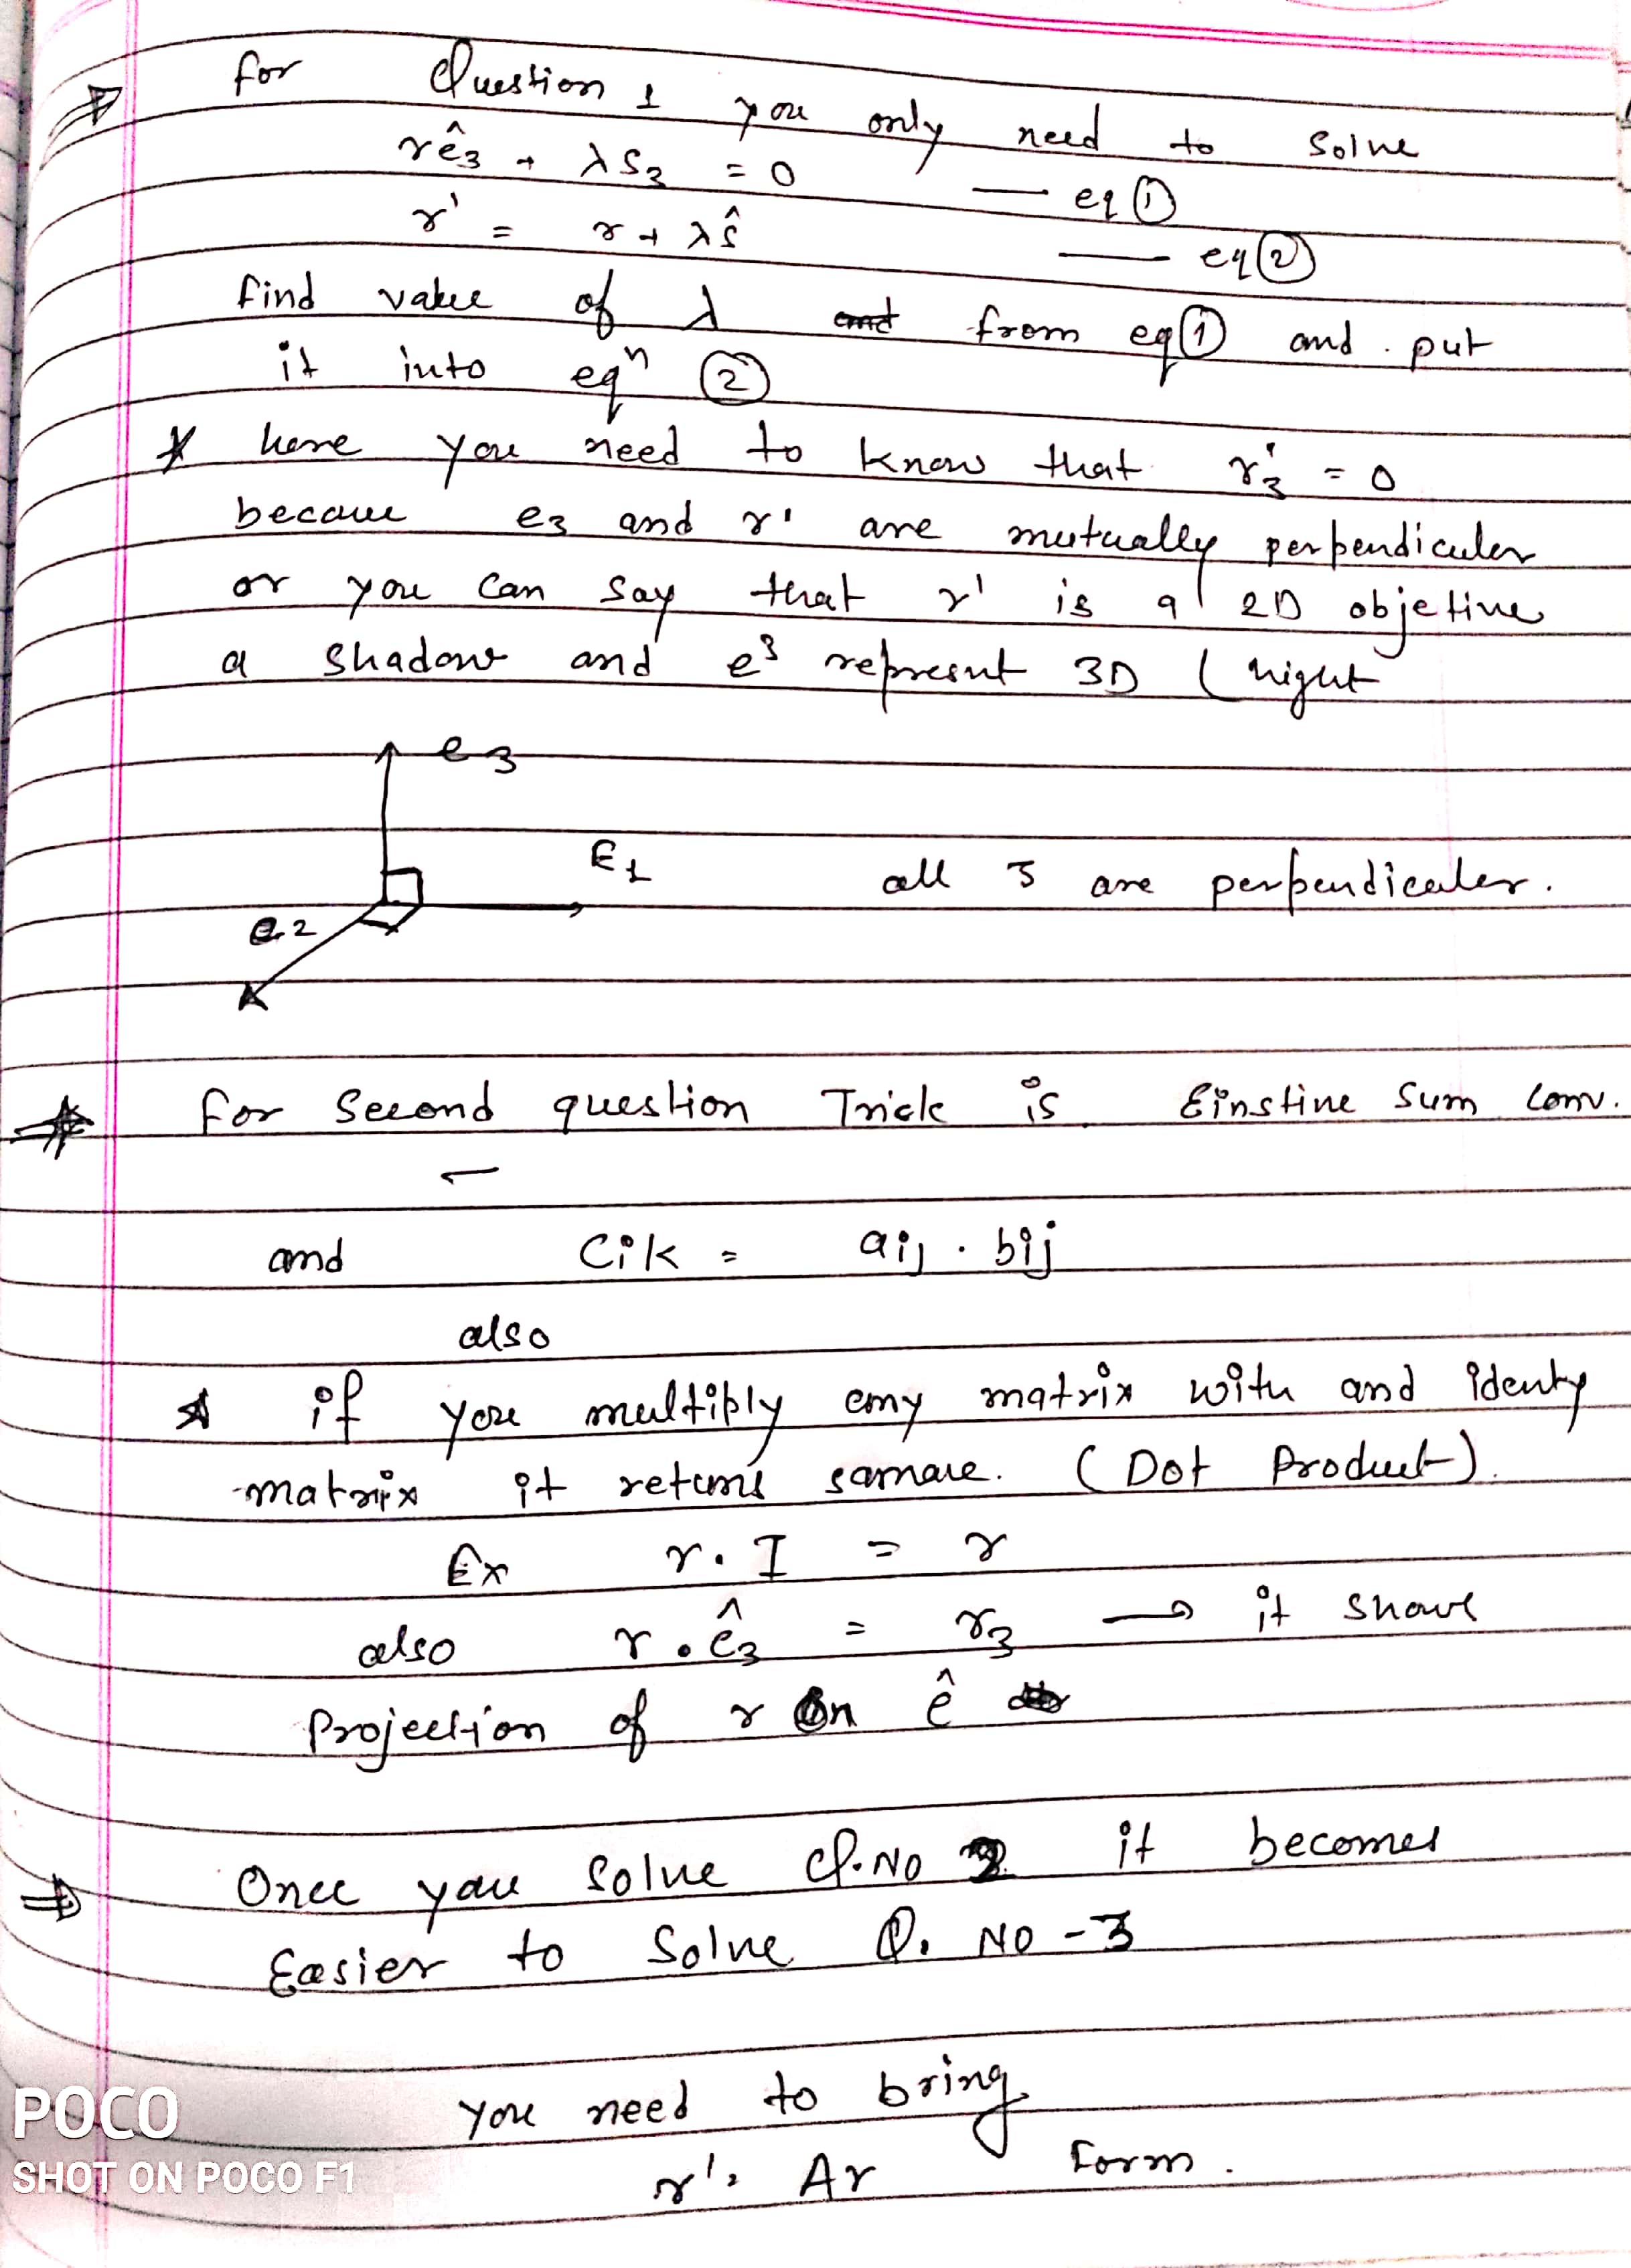 for Question 1 you only need to solve
rê₃ + λs₃ = 0 — eq ①
r' = r + λŝ — eq ②
find value of λ from eq ① and put
it into eqⁿ ②
* here you need to know that r'₃ = 0
because e₃ and r' are mutually perpendiculer
or you can say that r' is a 2D objetive
a shadow and e³ represnt 3D ( hight
e₃
E₁
e₂
all 3 are perpendiculer.
for Second question Trick is Einstine Sum Conv.
and Cik = aij . bij
also
* if you multiply any matrix with and identy
matrix it returns samare. (Dot Product).
Ex r . I = r
also r . ê₃ = r₃ → it shows
Projection of r On ê
⇒ Once you solve Q.NO 2 it becomes
Easier to Solve Q. NO - 3
you need to bring
r' = Ar form.
POCO
SHOT ON POCO F1